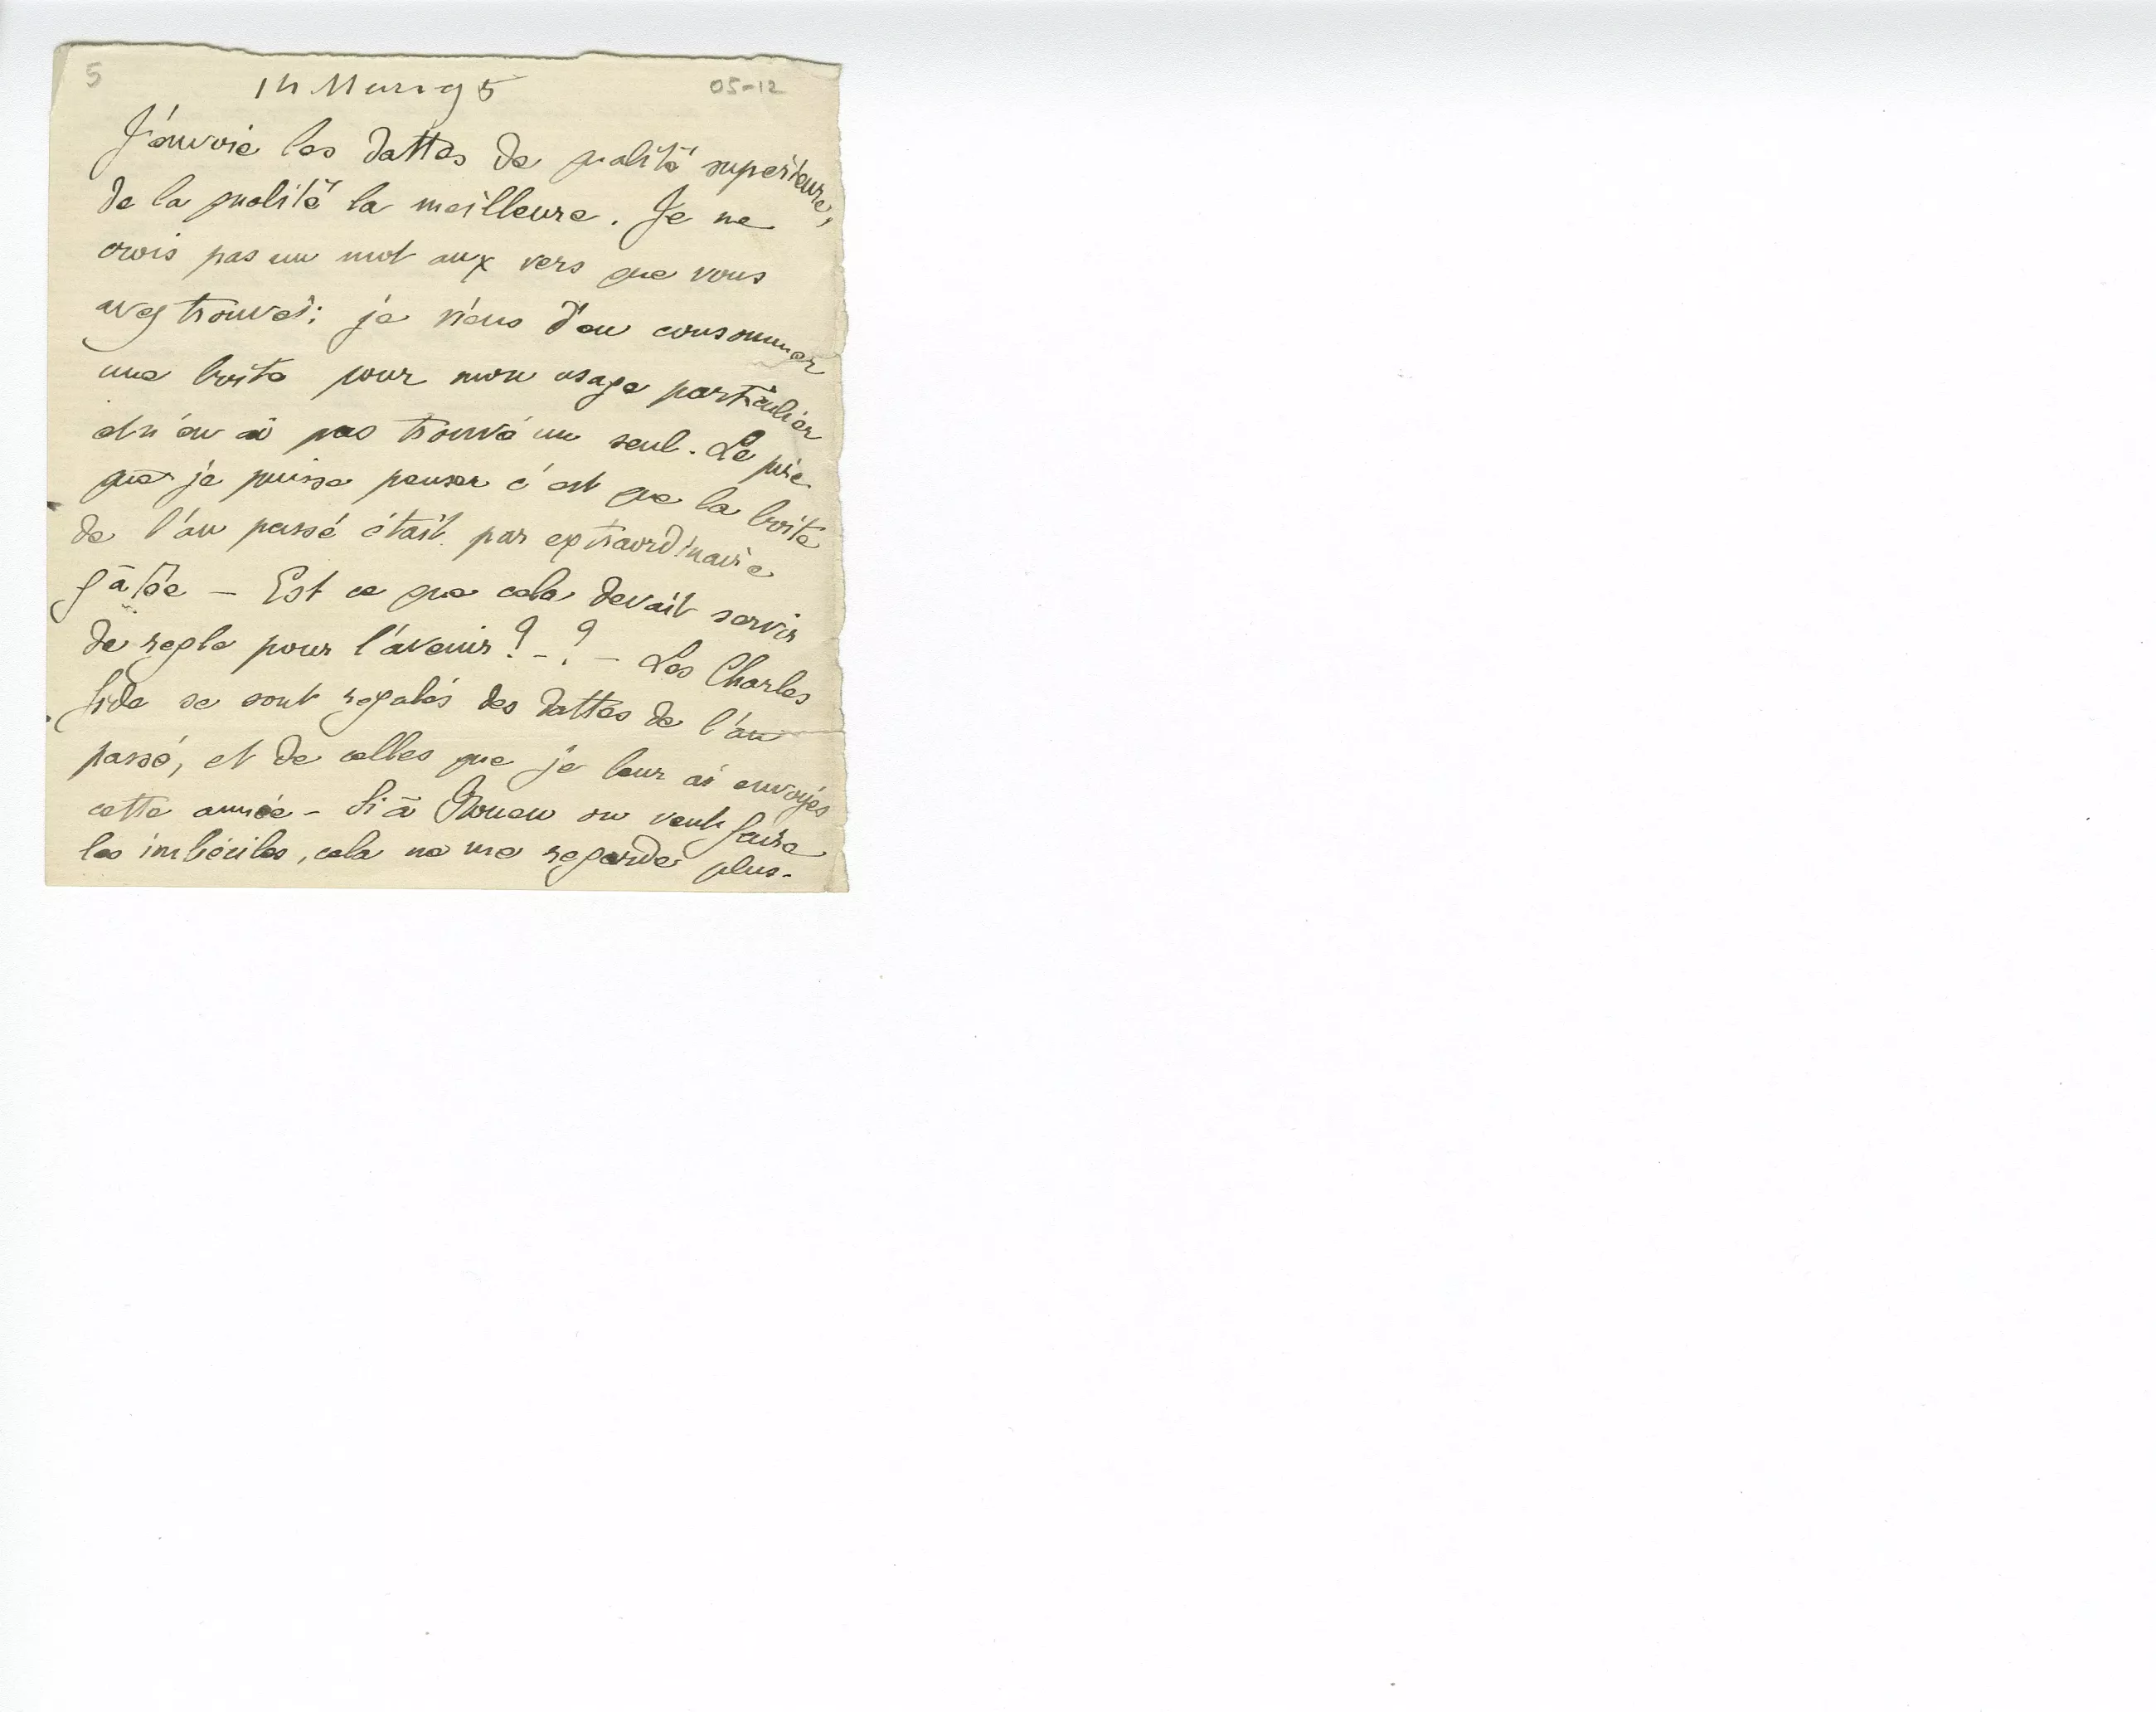 5
14 Mars 95
05-12
J'envoie les dattes de qualité supérieure,
de la qualité la meilleure. Je ne
crois pas un mot aux vers que vous
avez trouvés; je viens d'en consommer
une boite pour mon usage particulier
et n'en ai pas trouvé un seul. Le pire
que je puisse penser c'est que la boite
de l'an passé était par extraordinaire
gâtée - Est ce que cela devait servir
de regle pour l'avenir? - ? - Les Charles
Gide se sont régalés des dattes de l'an
passé, et de celles que je leur ai envoyés
cette année - Si à Rouen on veut faire
les imbéciles, cela ne me regarde plus.